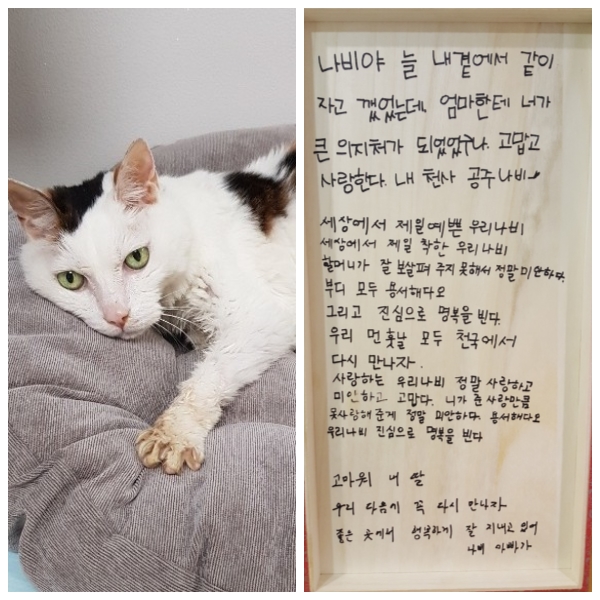 나비야 늘 내곁에서 같이
자고 깼었는데 엄마한테 너가
큰 의지처가 되었었구나. 고맙고
사랑한다. 내 천사 공주나비
세상에서 제일예쁜 우리나비
세상에서 제일 착한 우리나비
할머니가 잘 보살펴 주지 못해서 정말 미안하다.
부디 모두 용서해다오
그리고 진심으로 명복을 빈다.
우리 먼 훗날 모두 천국에서
다시 만나자.
사랑하는 우리나비 정말 사랑하고
미안하고 고맙다. 니가 준 사랑만큼
못사랑해준게 정말 미안하다. 용서해다오
우리나비 진심으로 명복을 빈다
고마워 내 딸
우리 다음에 꼭 다시 만나자
좋은 곳에서 행복하게 잘 지내고 있어
나비 아빠가